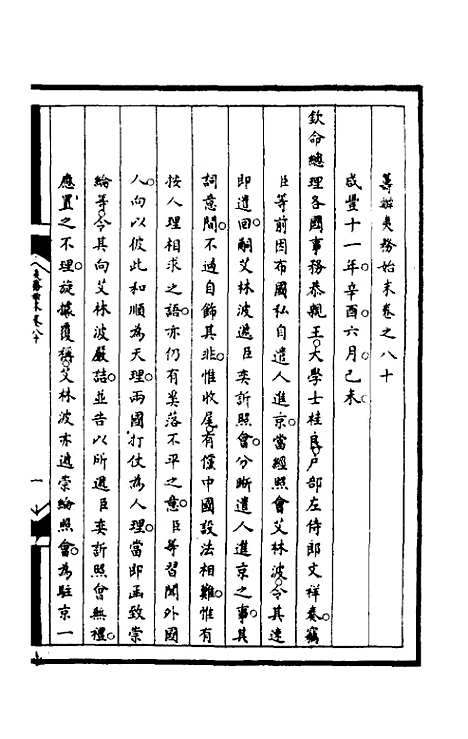 籌辦夷務始末卷之八十
咸豐十一年辛酉六月己未。
欽命總理各國事務恭親王。大學士桂良。戶部左侍郎文祥奏。竊
臣等前因布國私自遣人進京。當經照會艾林波。令其速
即遣回。嗣艾林波遞臣奕訢照會。分晰遣人進京之事。其
詞意閒。不過自飾其非。惟收尾。有僅中國設法相難。惟有
按人理相求之語。亦仍有奚落不平之意。臣等習聞外國
人。向以彼此和順為天理。兩國打仗為人理。當即函致崇
綸等。令其向艾林波嚴詰。並告以所遞臣奕訢照會無禮。
應置之不理。旋據覆稱。艾林波亦遞崇綸照會。為駐京一
夷務始末卷八十
一